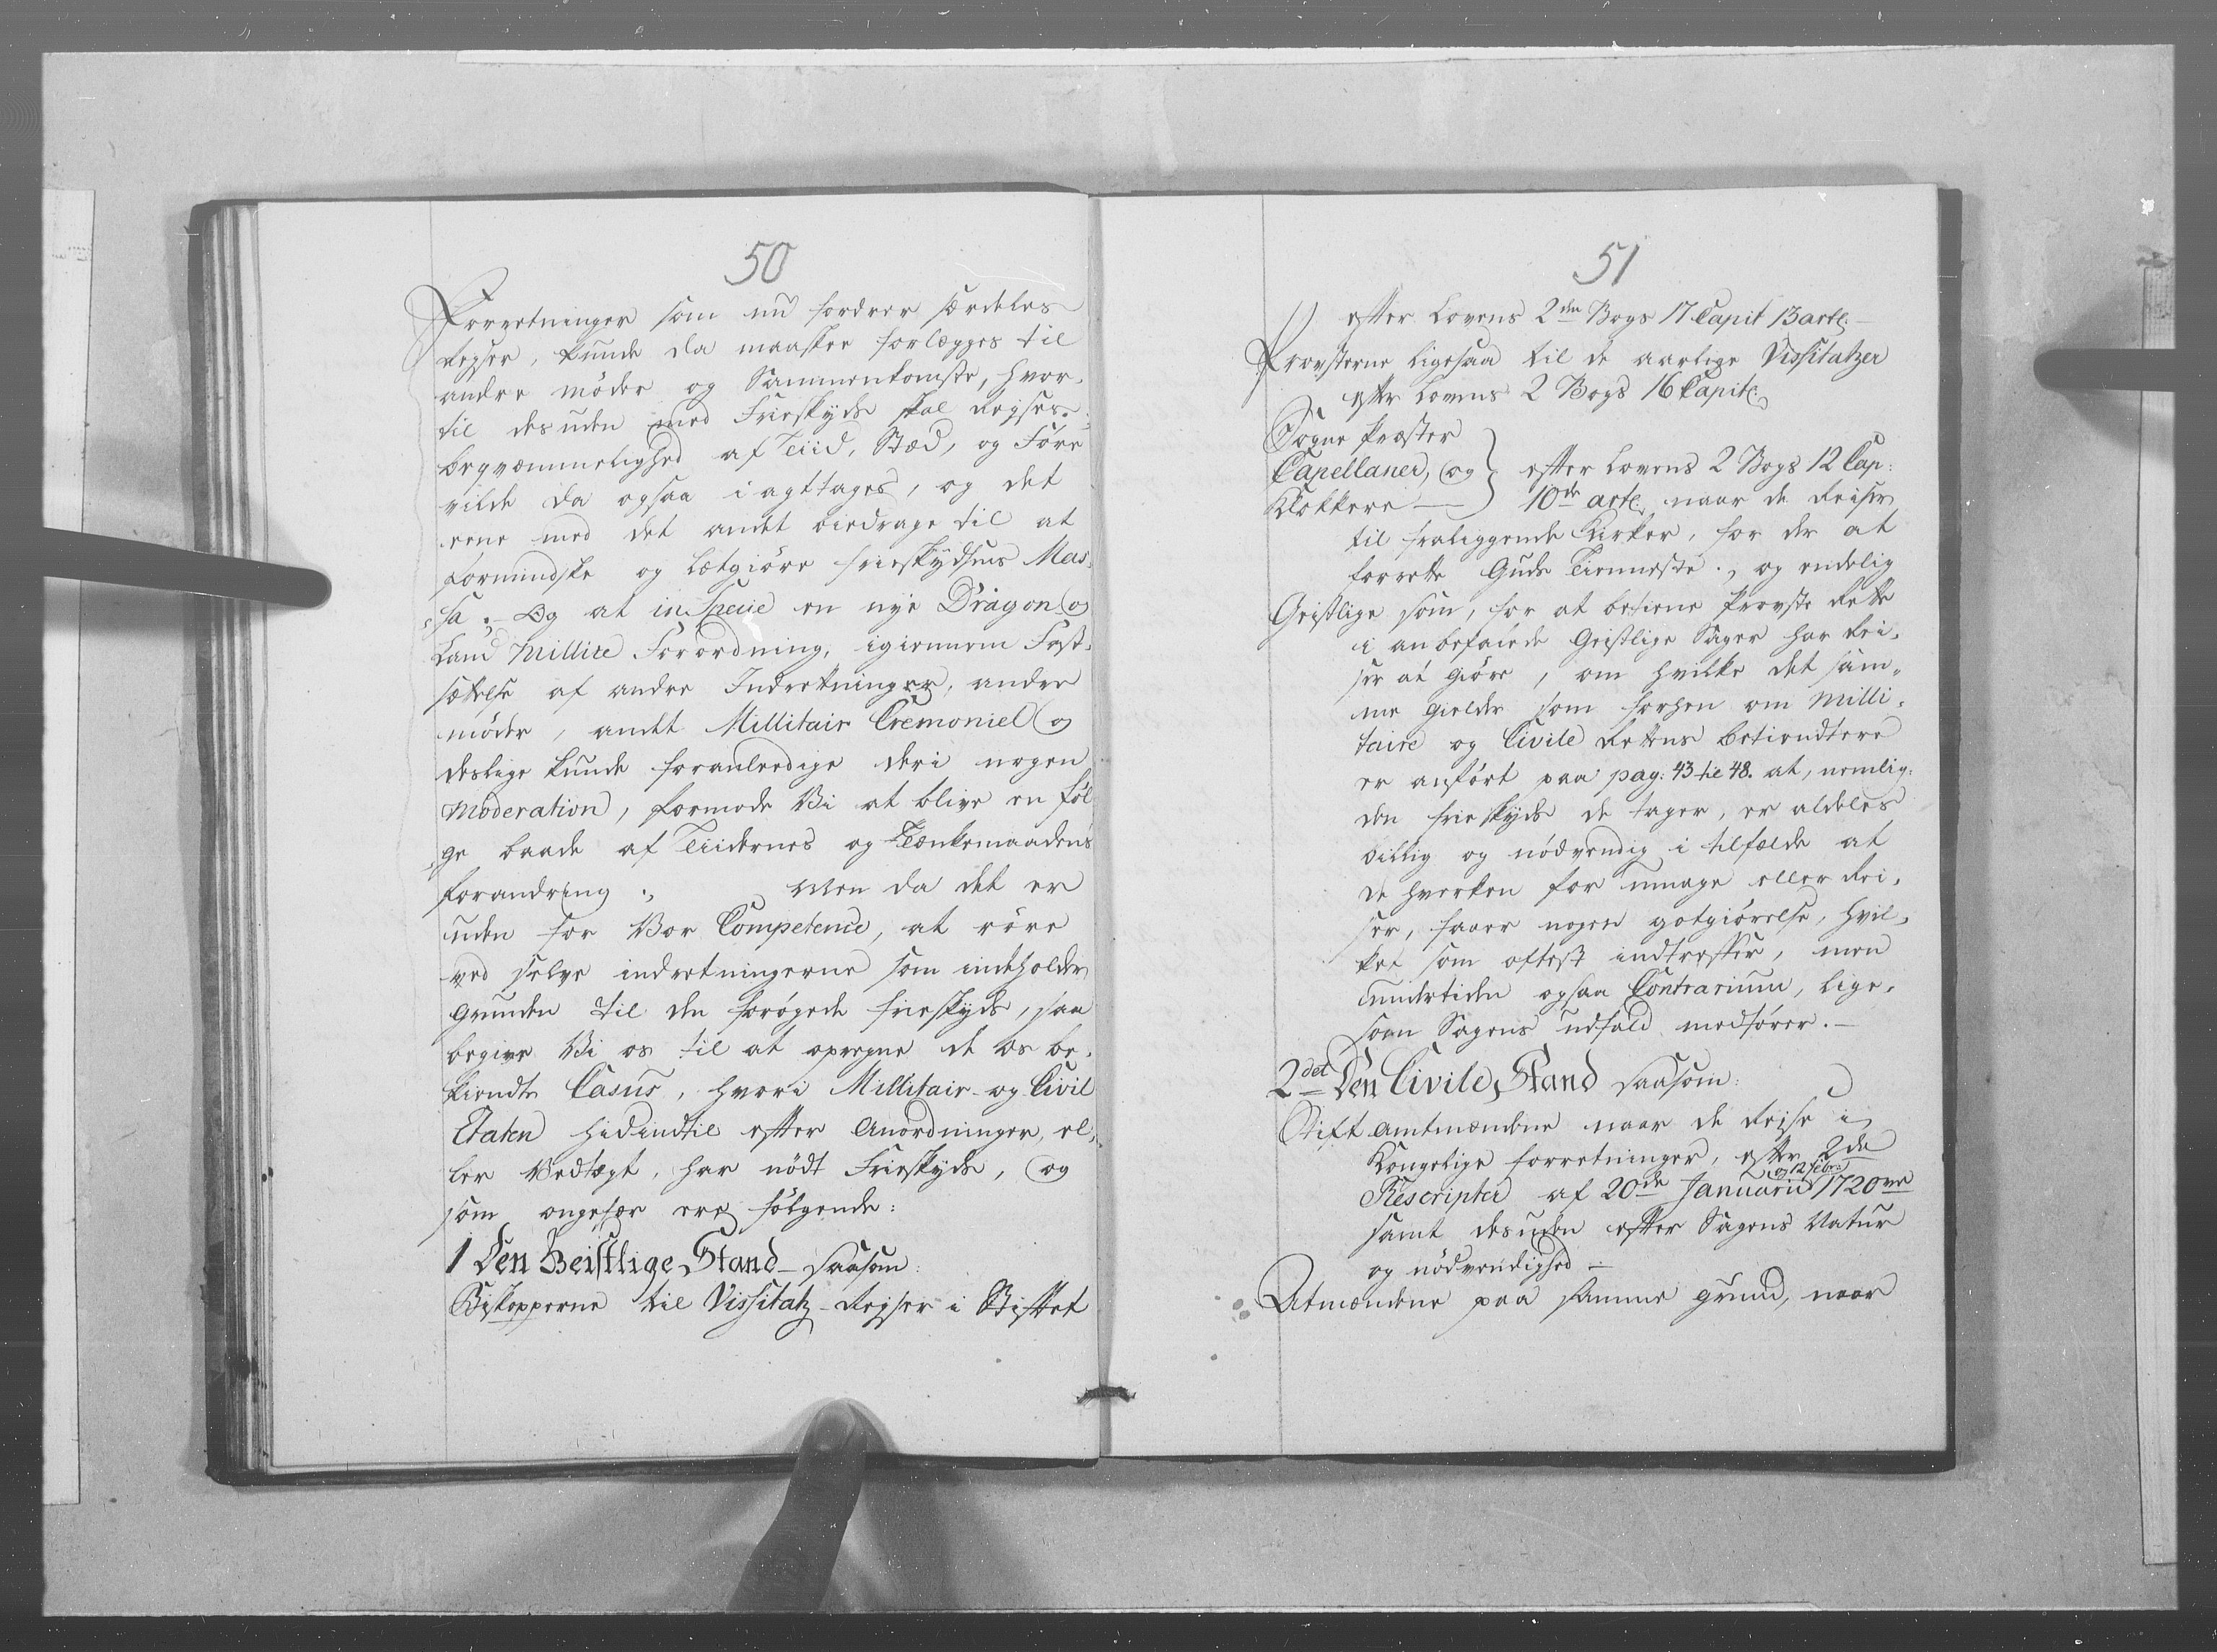 50
Forretninger som nu fordrer særdeles
Reyser, kunde da maaskee forlægges til
andre möder og Sammenkomster, hvor-
til desuden med Frieskyds skal Reyses.
beqvæmmelighed af Tiid, Stæd, og Före
vilde da ogsaa iagttages, og det
eene med det andet biedrage til at
formindske og Letgiöre frieskydsens Mas-
sa. Og at in Specie en nye Dragon og
Land Millice Forordning, igiennem Fast-
sættelse af andre Indretninger, andre
möder, andet Millitair Cremoniel og
deslige kunde foranledige deri nogen
Moderation, formode Vi at blive en föl-
ge baade af Tiidernes og Tænkemaadens
forandring. Men da det er
uden for Vor Competence, at röre
ved selve indretningerne som indeholder
grunden til den forögede frieskyds, saa
begive Vi os til at opregne de os be-
kiendte Casus, hvori Millitair- og Civil
Etaten hidindtil efter Anordninger, el-
ler Vedtægt, har nödt Frieskyds, og
som ongefær ere fölgende:
1 Den Geistlige Stand saasom:
Biskopperne til Vissitatz-Reyser i Stiftet
51
efter Lovens 2den Bogs 17 Capit 13 artl.
Provsterne Ligesaa til de aarlige Vissitatzer
efter Lovens 2 Bogs 16 Capitl.
Sogne Præster
Capellaner, og } efter Lovens 2 Bogs 12 Cap:
Klokkere — } 10de artl. naar de Reiser
til fraliggende Kirker, for der at
forrette Guds Tienneste, og endelig
Geistlige som, for at betiene Provste Rette
i anbefalede Geistlige Sager har Rei-
ser at giöre, om hvilke det sam-
me gielder som forhen om Milli-
taire og Civile Rettens betiendtere
er anfört paa pag: 43 til 48. at, nemlig:
den frieskyds de tager, er aldeles
billig og nödvendig i tilfælde at
de hverken for umage eller Rei-
ser, faaer nogen gotgiörelse, hvil-
ket som oftest indtreffer, men
undertiden ogsaa Contrarium, lige-
som Sagens udfald medförer.
2det Den Civile Stand saasom:
Stift Amtmændene naar de Reise i
Kongelige forretninger, efter 2de
og 12 Febr:
Rescripter af 20de Januarii 1720ve
samt desuden efter Sagens Natur
og nödvendighed
Amtmændene paa samme grund, naar